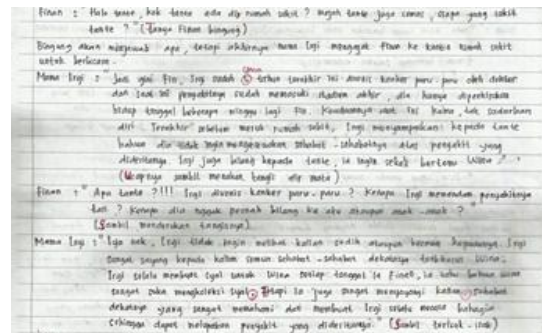 Finan : " Halo tante, kok tante ada di rumah sakit ? Wajah tante juga cemas, siapa yang sakit
tante ? " ( Tanya Finan bingung )
Bingung akan menjawab apa, tetapi akhirnya mama Ingi mengajak Finan ke kantin rumah sakit
untuk berbicara.
Mama Ingi : " Jadi gini Fin, Ingi sudah tahun terakhir ini divonis kanker paru-paru oleh dokter
dan saat ini penyakitnya sudah memasuki stadium akhir, dia hanya diperkirakan
hidup tinggal beberapa minggu lagi Fin. Keadaannya saat ini koma, tak sadarkan
diri. Terakhir sebelum masuk rumah sakit, Ingi menyampaikan kepada tante
bahwa dia tidak ingin mengecewakan sahabat-sahabatnya atas penyakit yang
dideritanya. Ingi juga bilang kepada tante, ia ingin sekali bertemu Wina . "
( Ucapnya sambil menahan tangis air mata )
Finan : " Apa tante ? !!! Ingi divonis kanker paru-paru ? Kenapa Ingi memendam penyakitnya
tan ? Kenapa dia nggak pernah bilang ke aku ataupun anak-anak ? "
( Sambil tangisnya )
Mama Ingi : " Iya nak, Ingi tidak ingin melihat kalian sedih ataupun kepadanya. Ingi
sangat sayang kepada kalian semua sahabat-sahabat dekatnya terkhusus Wina.
Ingi selalu membuat syal untuk Wina setiap tanggal 14 , ia tahu bahwa Wina
sangat suka mengoleksi syal, tetapi ia juga sangat menyayangi kalian sahabat
dekatnya yang sangat memahami dan membuat Ingi selalu merasa bahagia
sehingga dapat melupakan penyakit yang dideritanya. ( Sambil terisak-isak )